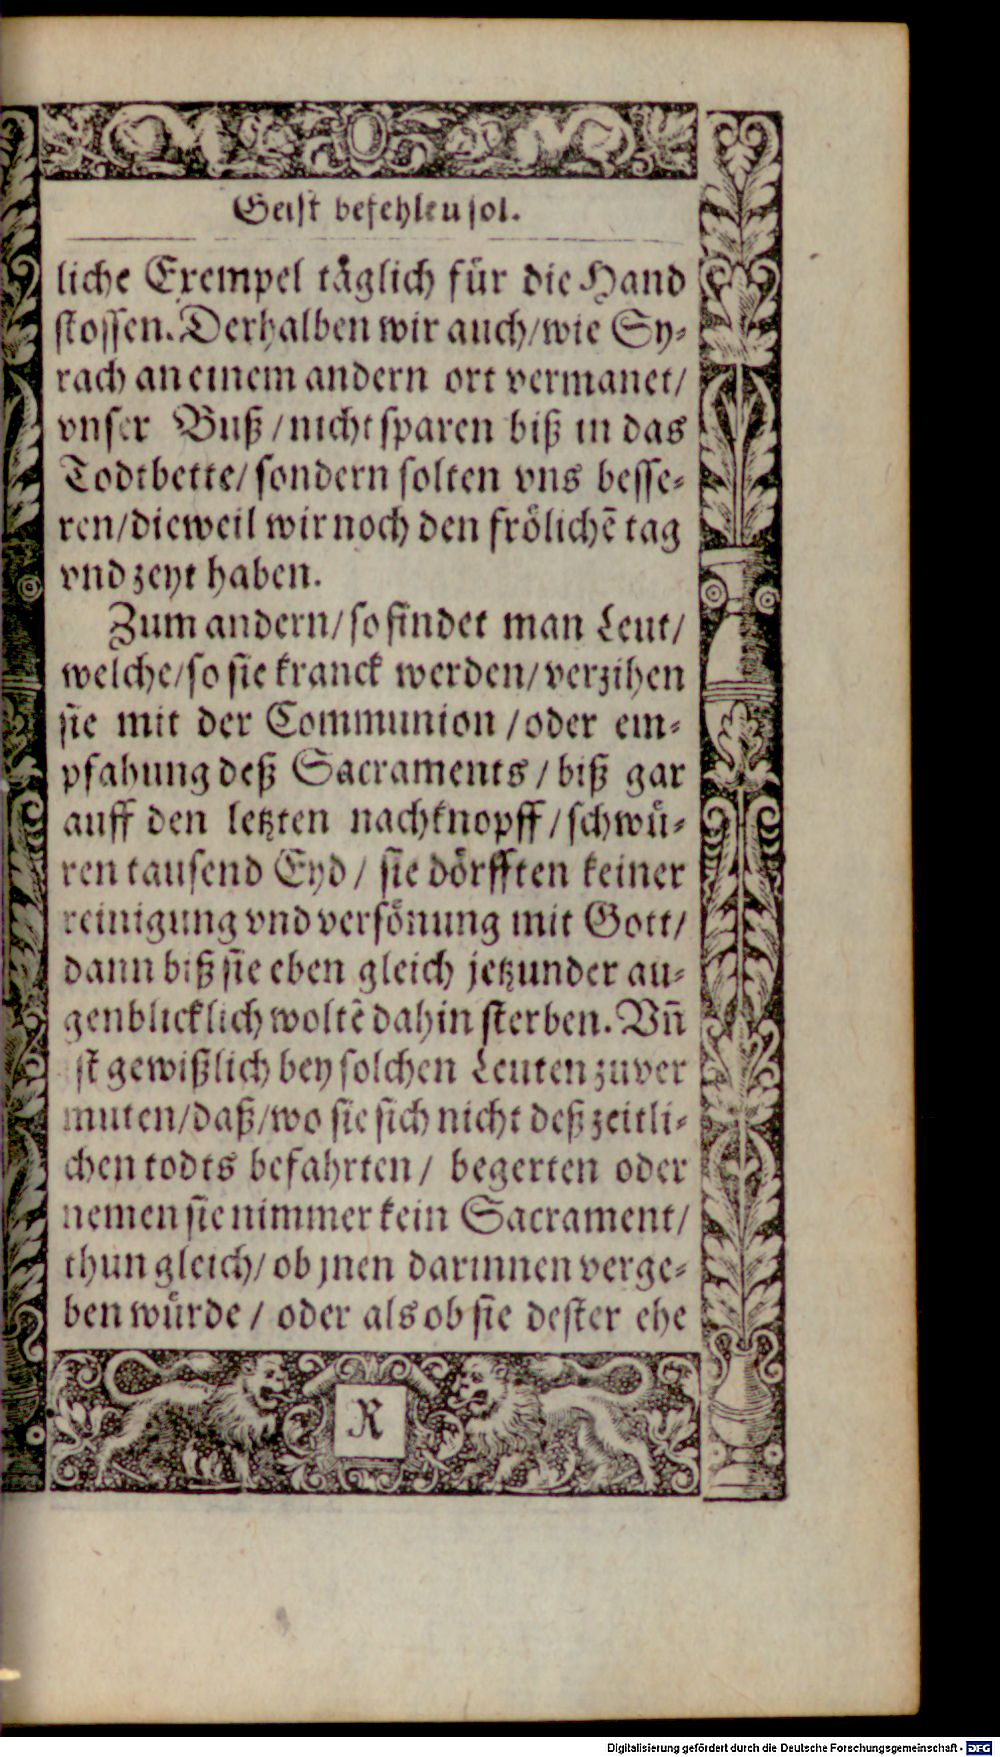 Geist befehlen sol.
liche Exempel täglich für die Hand
stossen. Derhalben wir auch/wie Sy-
rach an einem andern ort vermanet/
vnser Buß/nicht sparen biß in das
Todtbette/sondern solten vns besse-
ren/dieweil wir noch den frölichē tag
vnd zeyt haben.
Zum andern/so findet man Leut/
welche/so sie kranck werden/verzihen
sie mit der Communion/oder em-
pfahung deß Sacraments/biß gar
auff den letzten nachknopff/schwü-
ren tausend Eyd/sie dörfften keiner
reinigung vnd versönung mit Gott/
dann biß sie eben gleich jetzunder au-
genblicklich woltē dahin sterben. Vñ
ist gewißlich bey solchen Leuten zuver
muten/daß/wo sie sich nicht deß zeitli-
chen todts befahrten/begerten oder
nemen sie nimmer kein Sacrament/
thun gleich/ob jnen darinnen verge-
ben würde/oder als ob sie dester ehe
R
Digitalisierung gefördert durch die Deutsche Forschungsgemeinschaft - DFG